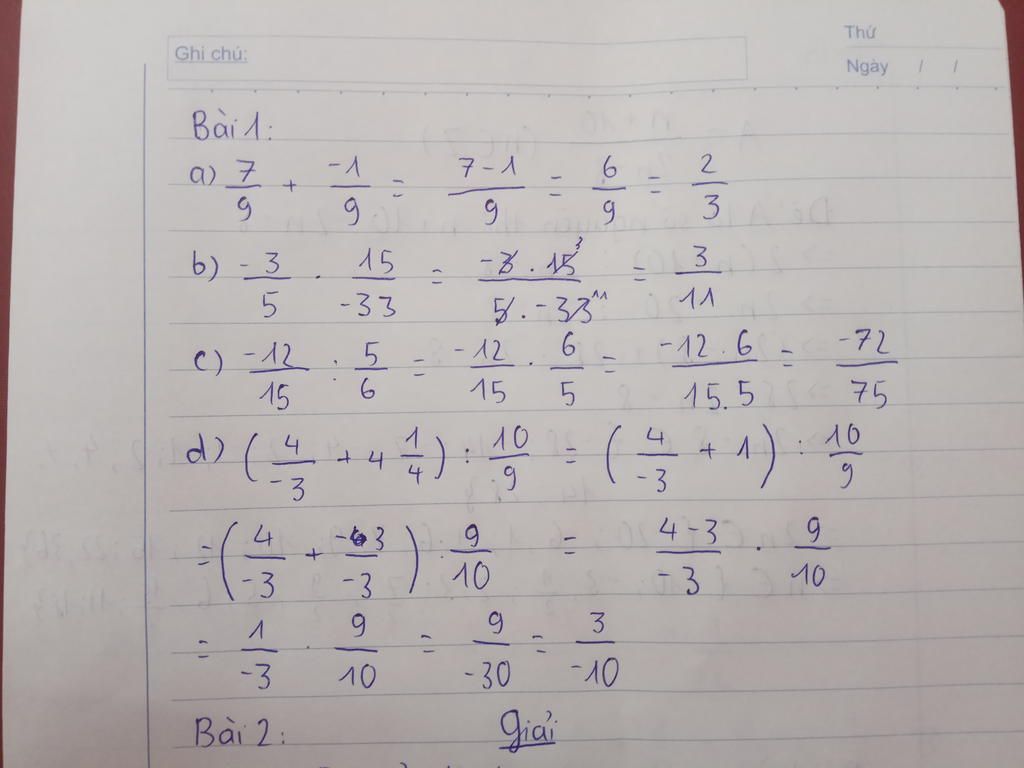 Thứ
Ghi chú:
Ngày / /
Bài 1:
a) 7/9 + -1/9 = 7-1/9 = 6/9 = 2/3
b) -3/5 . 15/-33 = -3 . 15 3/5 . -33 11 = 3/11
c) -12/15 : 5/6 = -12/15 . 6/5 = -12 . 6/15 . 5 = -72/75
d) (4/-3 + 4 1/4) : 10/9 = (4/-3 + 1) : 10/9
= (4/-3 + -3/-3) . 9/10 = 4-3/-3 . 9/10
= 1/-3 . 9/10 = 9/-30 = 3/-10
Bài 2: Giải